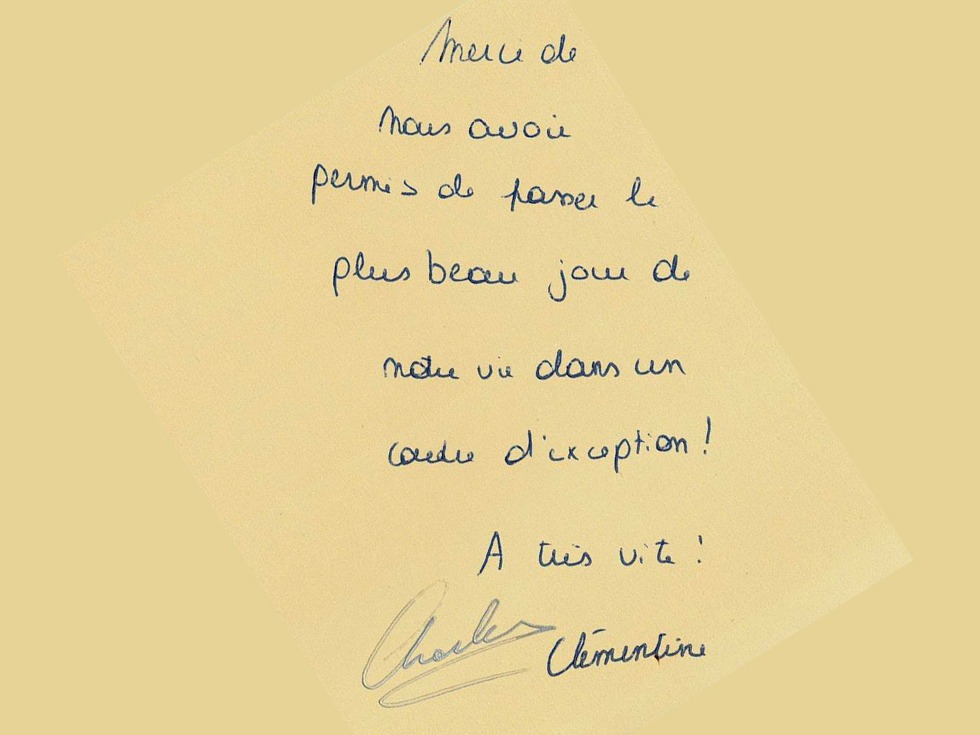 Merci de
nous avoir
permis de passer le
plus beau jour de
notre vie dans un
cadre d'exception !
A très vite !
Charles Clémentine